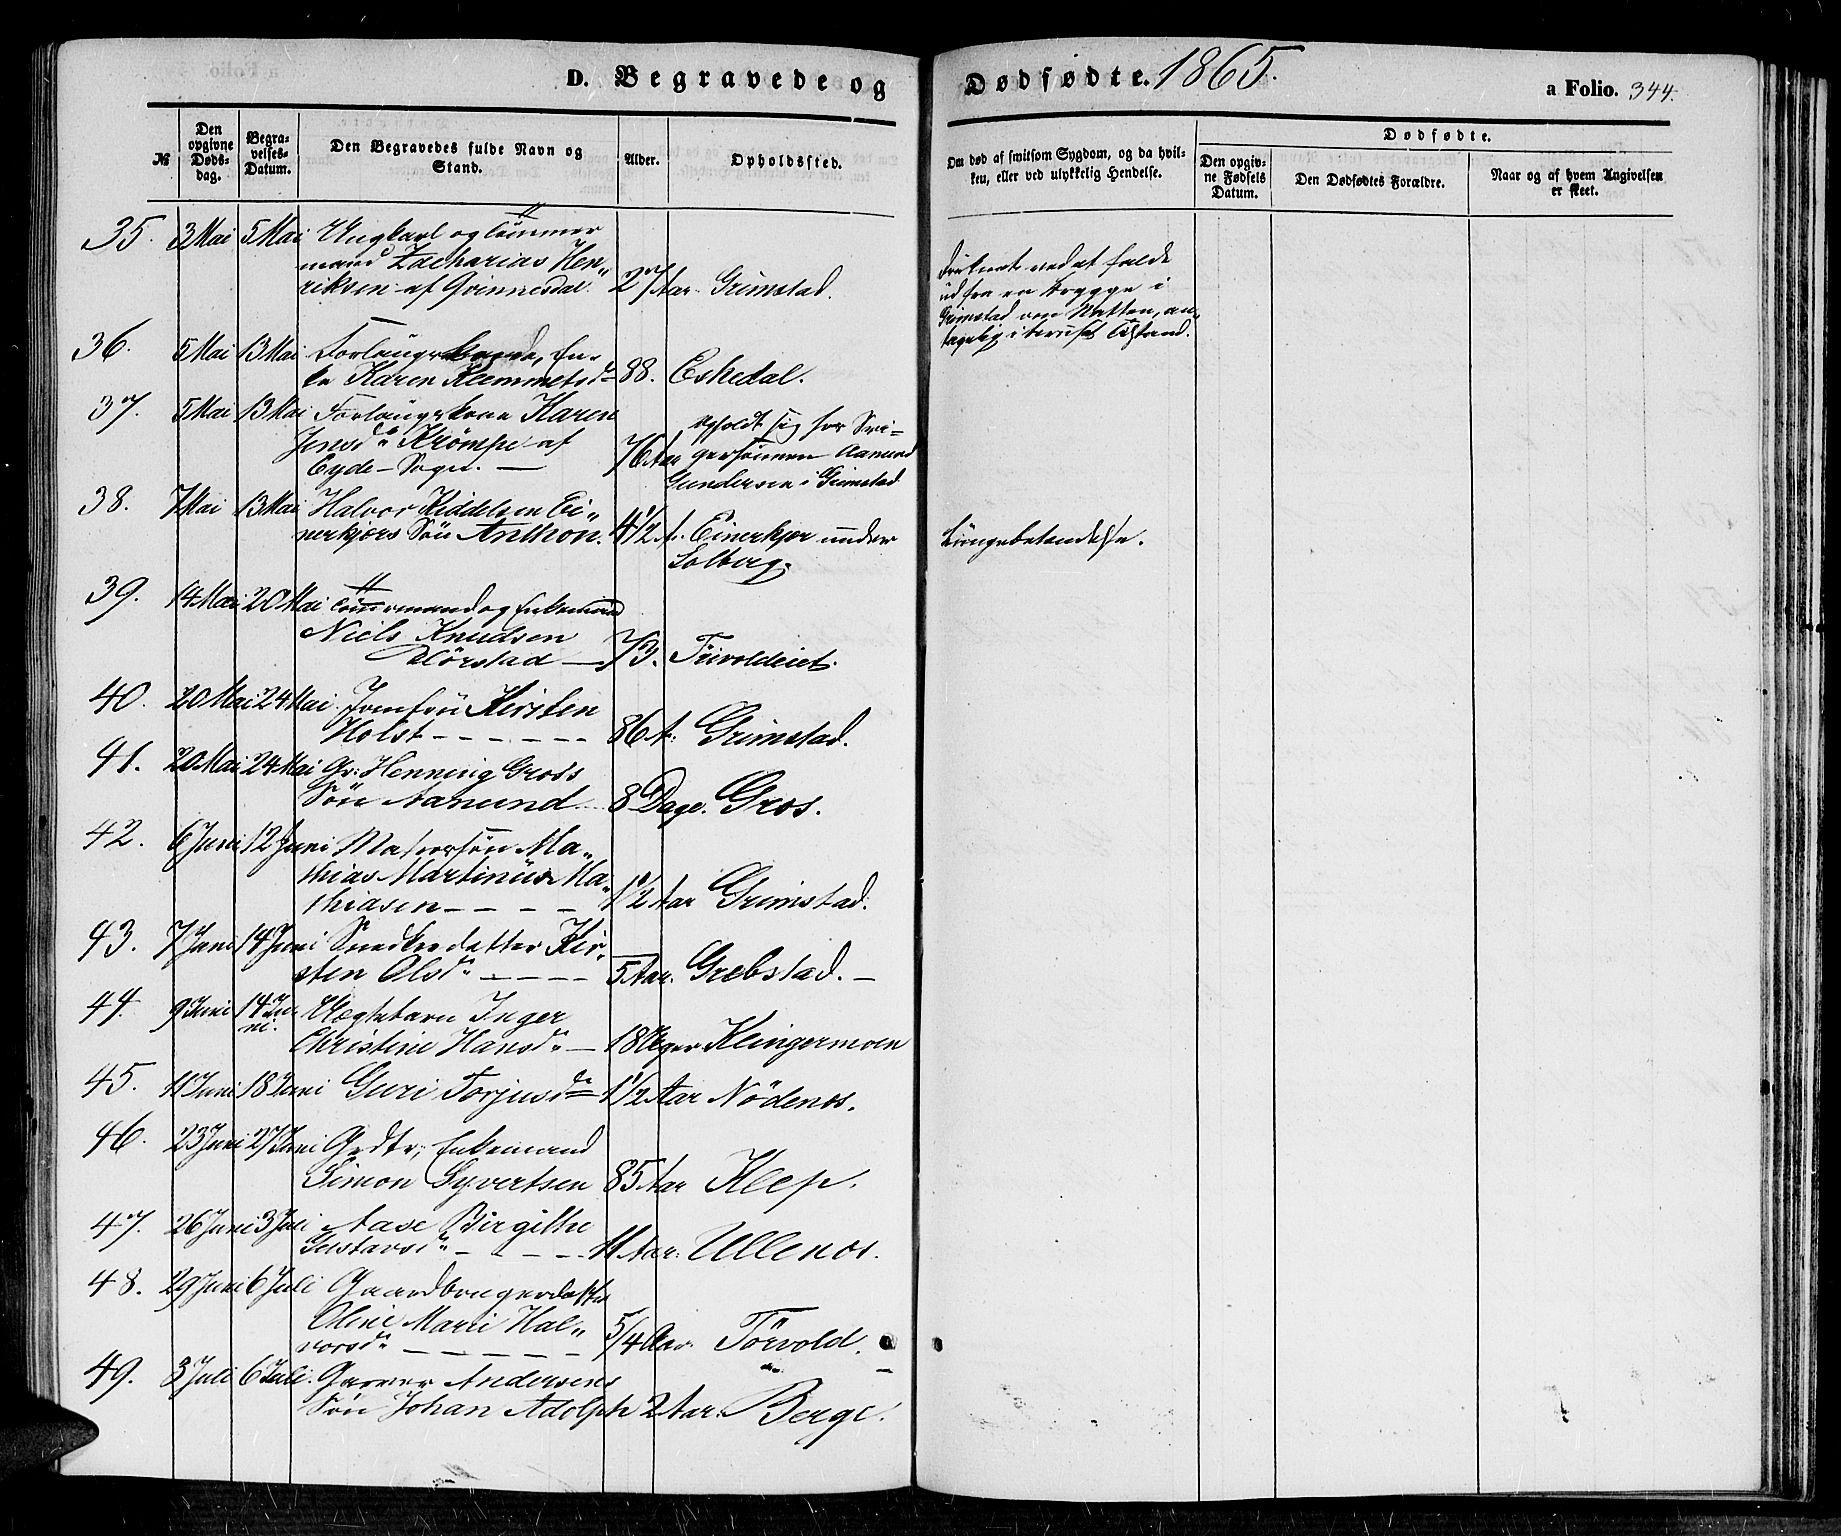 D. Begravede og Dødfødte. 1865.
a Folio. 344.
№
Den opgivne Døds-dag.
Begra-velses-Datum.
Den Begravedes fulde Navn og Stand.
Alder.
Opholdssted.
Om død af smitsom Sygdom, og da hvil-
ken, eller ved ulykkelig Hendelse.
Dødfødte.
Den opgiv-ne Fødsels Datum.
Den Dødfødtes Forældre.
Naar og af hvem Angivelsen er skeet.
35. 3 Mai 5 Mai Ungkarl og Tømmer
mand Zacharias Hen„
riksen af Qvinnesdal 27 Aar Grimstad.
druknet ved at falde
ud fra en Brygge i
Grimstad om Natten, an„
tagelig i beruset Tilstand.
36. 5 Mai 13 Mai Forlaugskone, En-
ke Karen Klemmetsd. 88. Eskedal.
37. 5 Mai 13 Mai Forlaugskone Karen
Jensd. Krömpe af
Eyde-Sogn. — 76 Aar
opholdt sig hos Svi-
gersønnen Aamund
Gundersen i Grimstad
38. 7 Mai 13 Mai Halvor Kiddelsen Ei„
nerkjers Søn Anthon. 4 1/2 A. Einerkjer under
Solberg.
Lungebetændelse.
39. 14 Mai 20 Mai Tømmermand og Enkemand
Niels Knudsen
Hørstad — 73. Trivoldeiet.
40. 20 Mai 24 Mai Jomfru Kirsten
Holst - - - - - - 86 A: Grimstad.
41. 20 Mai 24 Mai Gr: Henning Gross
Søn Aamund 8 Dage. Gros.
42. 6 Juni 12 Juni Matrossøn Ma„
thias Martinus Ma„
thiasen - - - - 1 1/2 Aar Grimstad.
43. 7 Juni 14 Juni Snedkerdatter Kir„
sten Olsd. - - - - 5 Aar. Grebstad. —
44. 9 Juni 14 Ju-
ni. Uægtebarn Inger
Christine Hansd. — 18 Uger Klingermoen
45. 11 Juni 18 Juni Guri Torjusd. 1 1/2 Aar Nödenes.
46. 23 Juni 27 Juni Grdbr; Enkemand
Simon Syvertsen 85 Aar Klep.
47. 26 Juni 3 Juli Aase Birgithe
Gustavsd. - - - - 11 Aar: Ullenes.
48. 29 Juni 6 Juli Gaardbrugerdatter
Oline Marie Hal„
vorsd. - - - - - 5/4 Aar Törvold.
49. 3 Juli 6 Juli. Garver Andersens
Søn Johan Adolph 2 Aar. Berge.